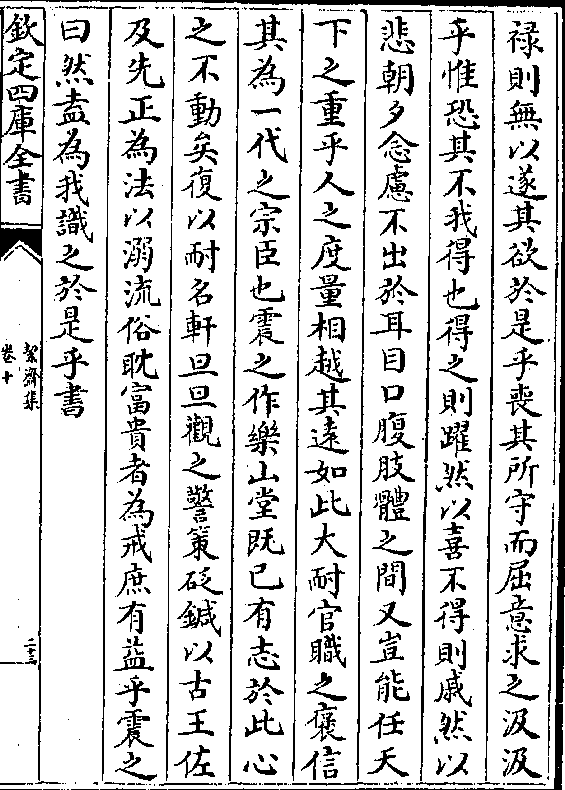 禄則無以遂其欲於是乎喪其所守而屈意求之汲汲
乎惟恐其不我得也得之則躍然以喜不得則戚然以
悲朝夕念慮不出於耳目口腹肢體之間又豈能任天
下之重乎人之度量相越其遠如此大耐官職之褒信
其為一代之宗臣也震之作樂山堂既已有志於此心
之不動矣復以耐名軒旦旦觀之警策砭鍼以古王佐
及先正為法以溺流俗耽富貴者為戒庶有益乎震之
曰然盍為我識之於是乎書
欽定四庫全書
絜齋集
卷十
二十三